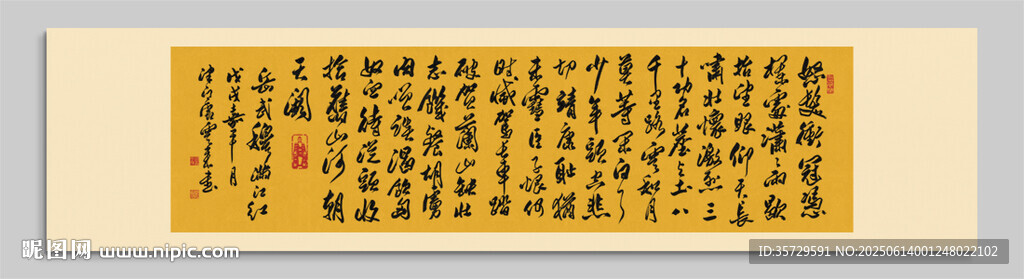 怒髮衝冠憑
欄處瀟瀟雨歇
抬望眼仰天長
嘯壯懷激烈三
十功名塵与土八
千里路雲和月
莫等閑白了
少年頭空悲
切靖康耻猶
未雪臣子恨何
時滅駕長車踏
破賀蘭山缺壯
志饑餐胡虜
肉笑談渴飲匈
奴血待從頭收
拾舊山河朝
天闕
岳武穆滿江紅
戊戌嘉平月
津門唐雲來書
昵图网 www.nipic.com
ID:35729591 NO:20250614001248022102